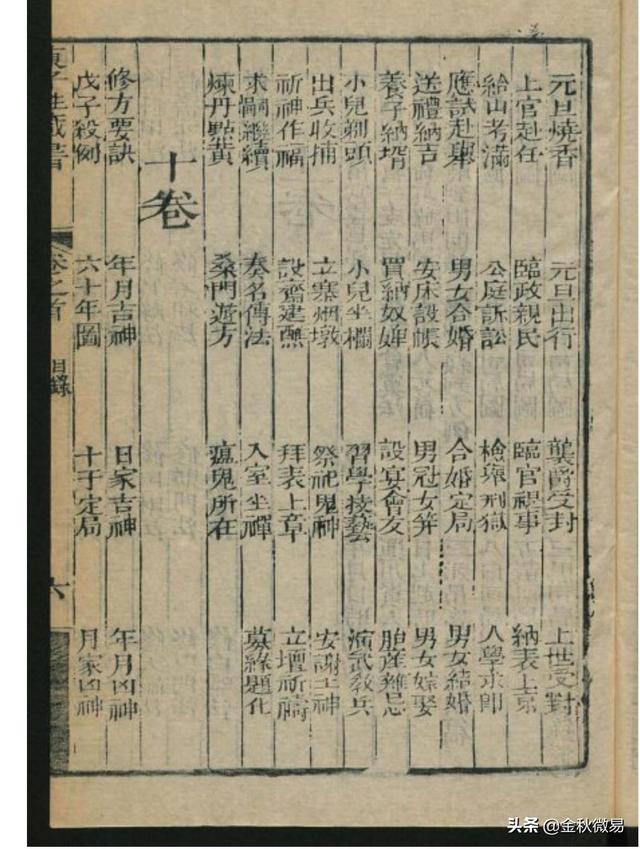 元旦燒香 元旦出行 襲爵受封 上世受封
上官赴任 臨政親民 臨官視事 納表上京
給由考滿 公庭訴訟 檢舉刑獄 入學求師
應試赴舉 男女合婚 合婚定局 男女結婚
送禮納吉 安床設帳 男冠女筓 男女嫁娶
養子納壻 買納奴婢 設宴會友 胎產雜忌
小兒剃頭 小兒坐欄 習學技藝 演武教兵
出兵收捕 立寨烟墩 祭祀鬼神 安謝土神
祈神作福 設齋建醮 拜表上章 立壇祈禱
求嗣繼續 奏名傳法 入室坐禪 募緣題化
煉丹點黃 桑門遊方 瘟鬼所在
十卷
修方要訣 年月吉神 日家吉神 年月凶神
戊子殺例 六十年圖 十干定局 月家凶神
卷之首 目錄 六
头条 @金秋微易